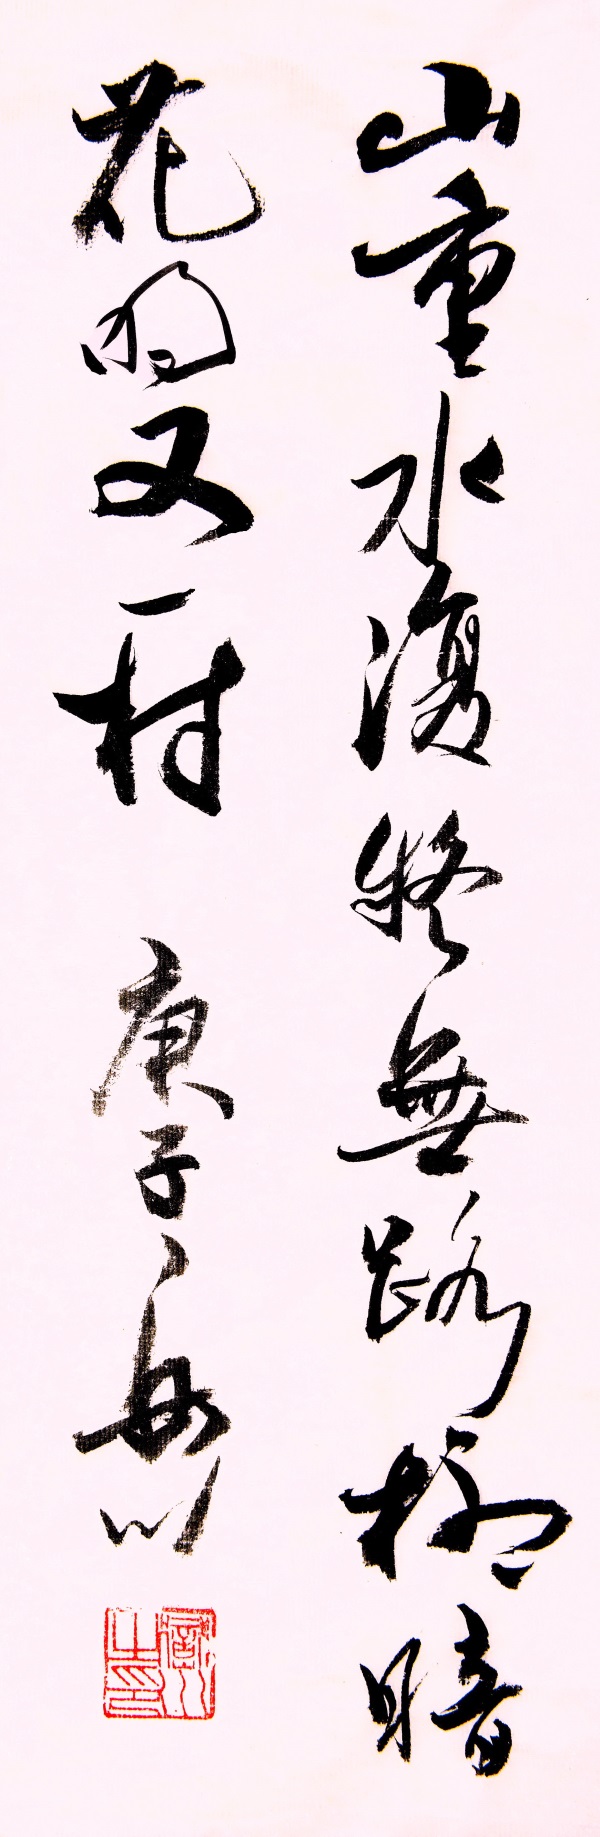 山重水複疑無路柳暗
花明又一村 庚子